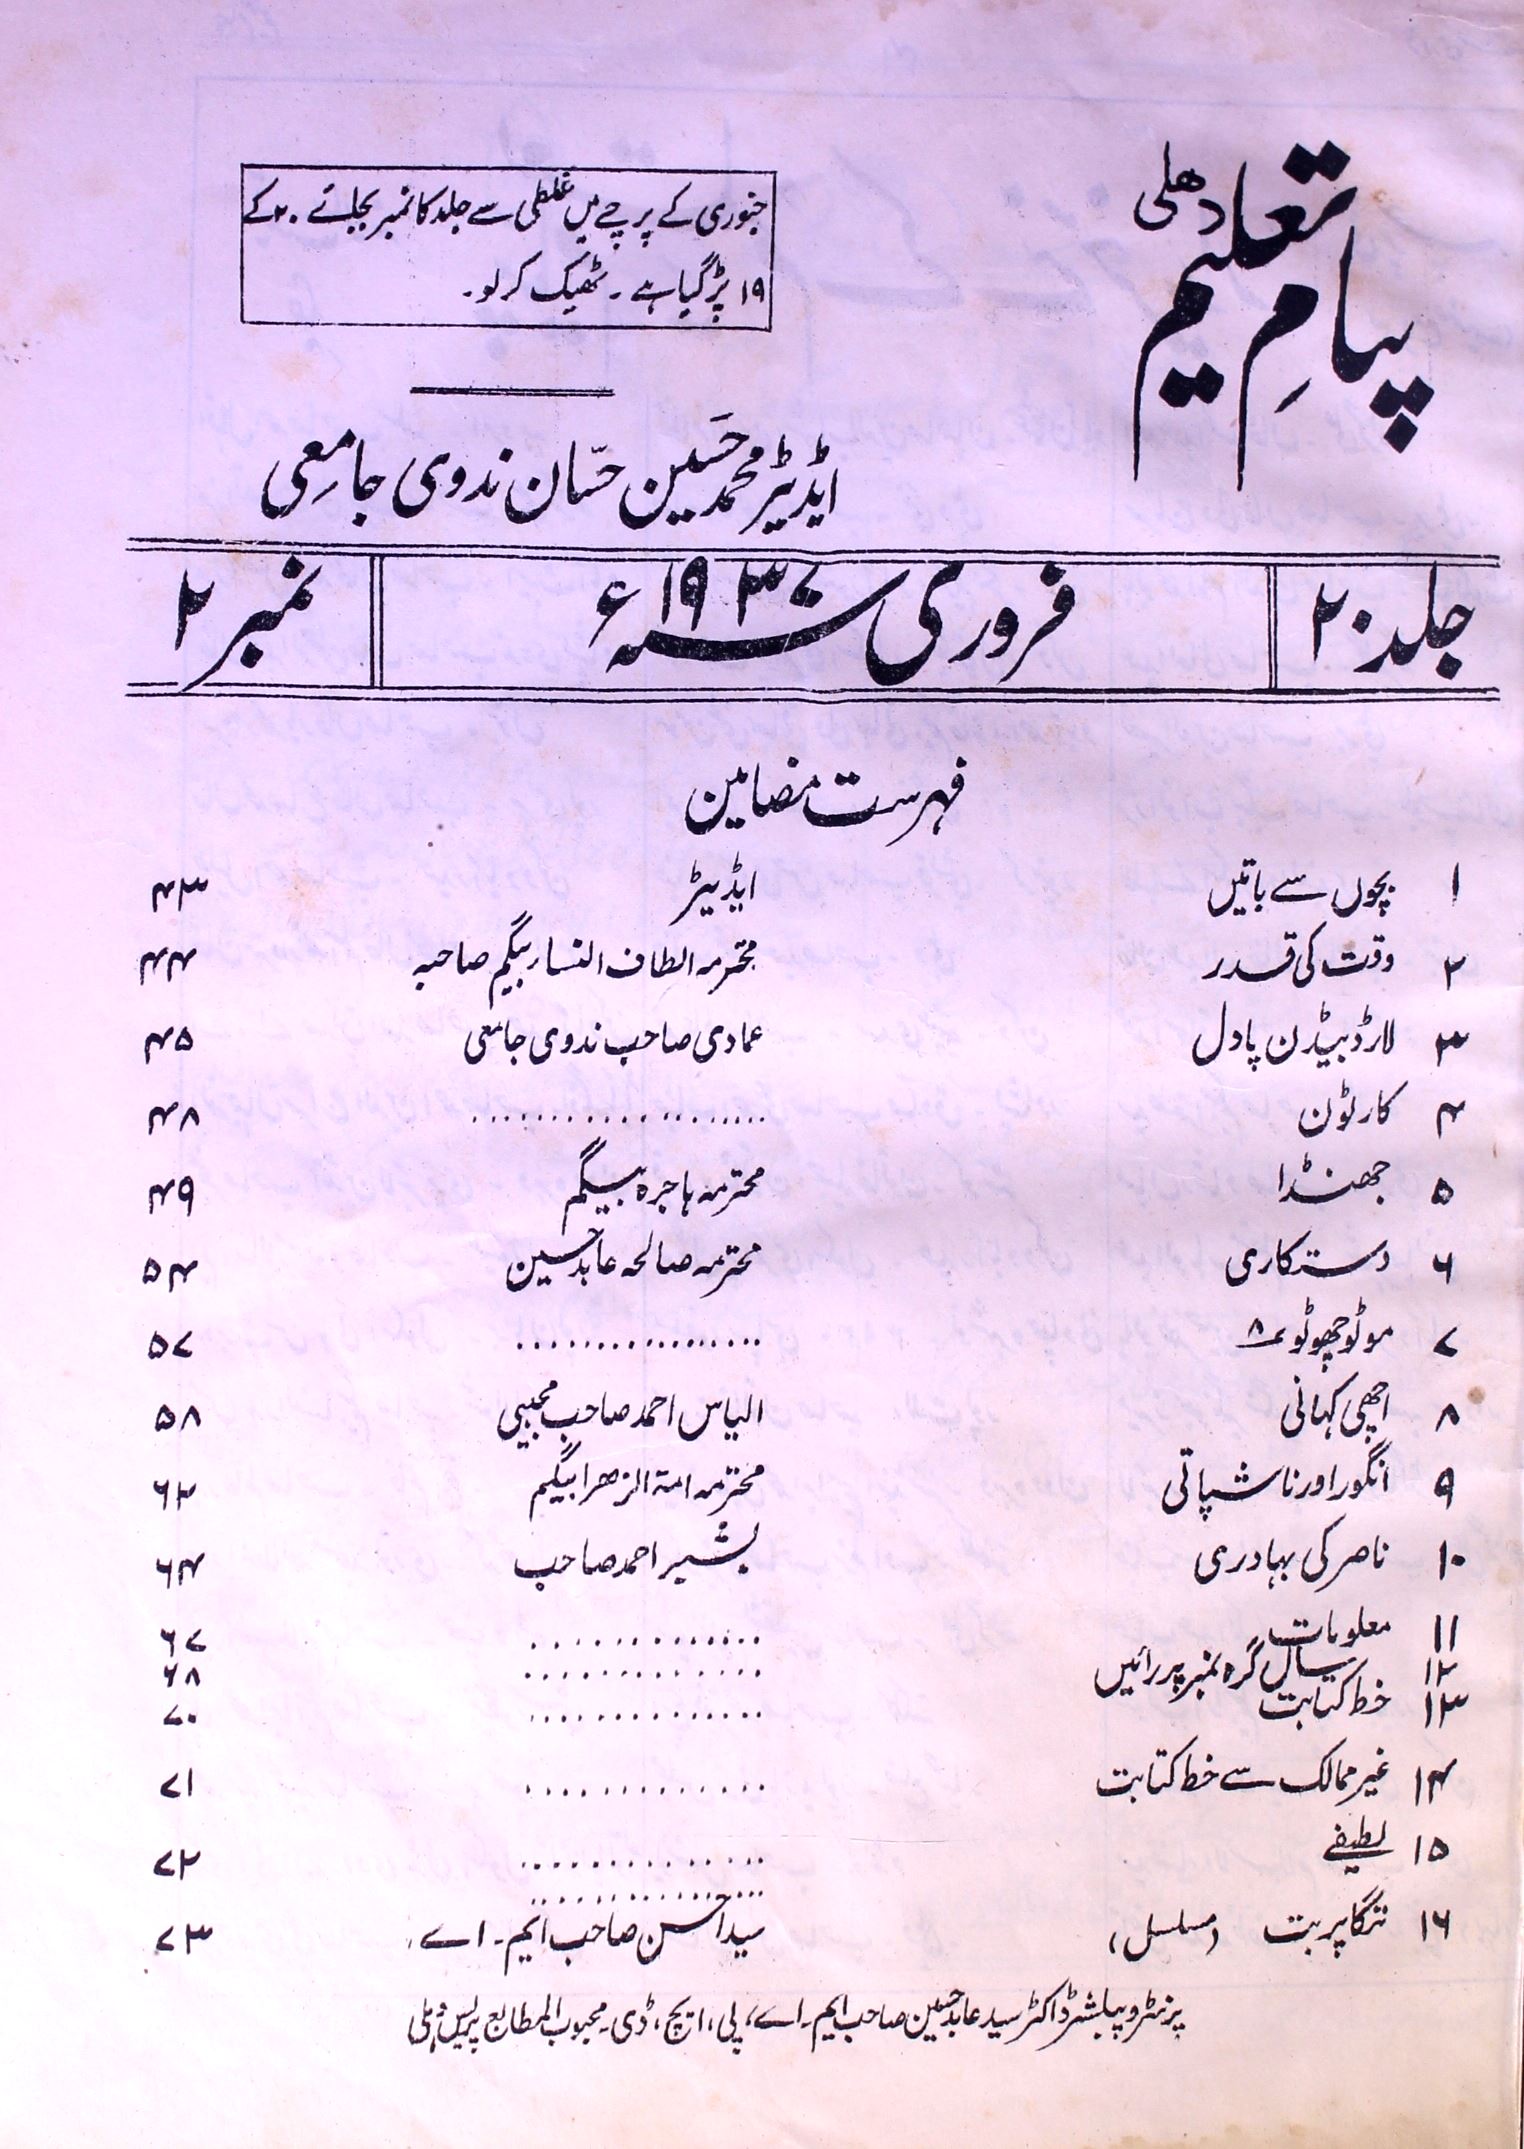 پیام تعلیم دھلی
جنوری کے پرچے میں غلطی سے جلد کا نمبر بجائے ۲۰ کے
۱۹ پڑ گیا ہے ۔ ٹھیک کر لو ۔
ایڈیٹر محمد حَسین حسّان ندوی جامعِی
جلد ۲۰ فروری ۱۹۳۷ء نمبر ۲
فہرست مضامین
۱ بچوں سے باتیں ایڈیٹر ۴۳
۲ وقت کی قدر محترمہ الطاف النسا بیگم صاحبہ ۴۴
۳ لارڈ بیڈن پاول عمادی صاحب ندوی جامعی ۴۵
۴ کارٹون .................. ۴۸
۵ جھنڈا محترمہ ہاجرہ بیگم ۴۹
۶ دستکاری محترمہ صالحہ عابد حسین ۵۴
۷ موٹو چھوٹو ۸ ................ ۵۷
۸ اچھی کہانی الیاس احمد صاحب مجیبی ۵۸
۹ انگور اور ناشپاتی محترمہ امۃ الزھرا بیگم ۶۲
۱۰ ناصر کی بہادری بشیر احمد صاحب ۶۴
۱۱ معلومات ............. ۶۷
۱۲ سال گرہ نمبر پر رائیں ............. ۶۸
۱۳ خط کتابت ............. ۷۰
۱۴ غیر ممالک سے خط کتابت ............. ۷۱
۱۵ لطیفے ............. ۷۲
.............
۱۶ ننگا پربت (مسلسل) سید احسن صاحب ایم ۔ اے، ۷۳
پرنٹر و پبلشر ڈاکٹر سید عابد حسین صاحب ایم ۔ اے، پی، ایچ، ڈی ۔ محبوب المطابع پریس دہلی